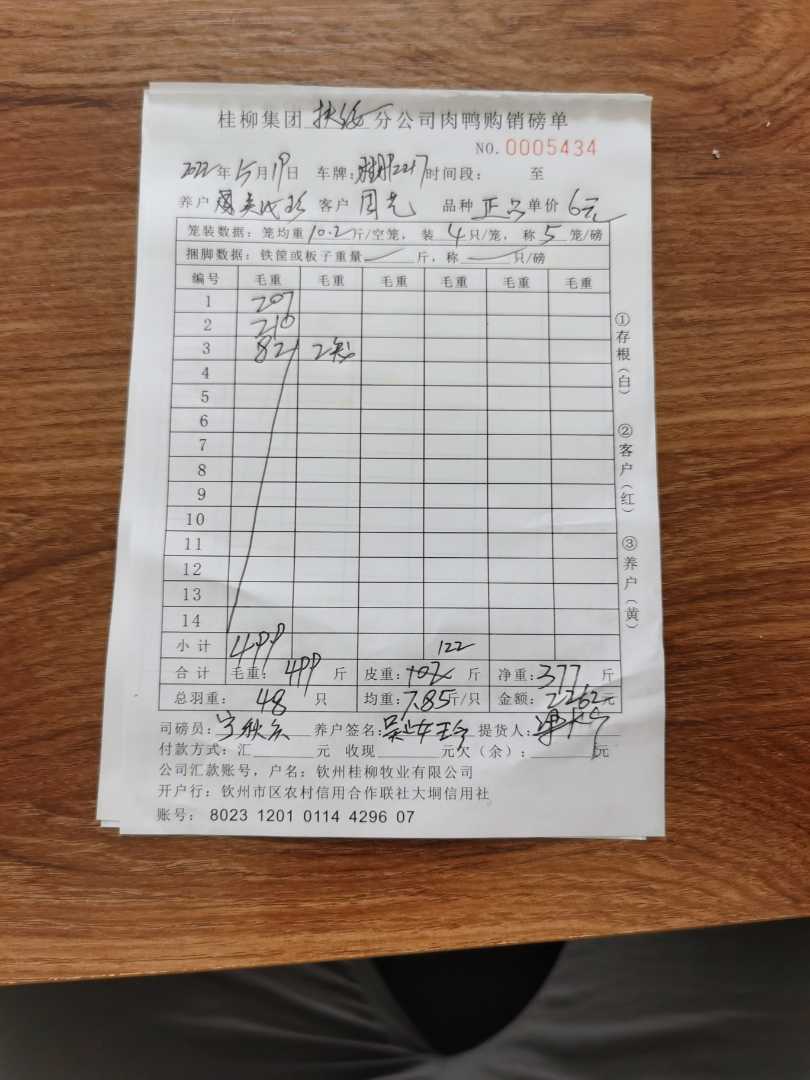 桂柳集团 扶绥 分公司肉鸭购销磅单
NO. 0005434
2022年5月19日 车牌: 时间段: 至
养户 客户 周光 品种 正品 单价 6元
笼装数据: 笼均重 10.2 斤/空笼, 装 4 只/笼, 称 5 笼/磅
捆脚数据: 铁筐或板子重量 — 斤, 称 — 只/磅
编号 毛重 毛重 毛重 毛重 毛重 毛重
1 207
2 210
3 82 2笼
4
5
6
7
8
9
10
11
12
13
14
小计 499 122
合计 毛重: 499 斤 皮重: 斤 净重: 377 斤
总羽重: 48 只 均重: 7.85斤/只 金额: 2262元
司磅员: 养户签名: 提货人:
付款方式: 汇 元 收现 元欠(余): 元
公司汇款账号, 户名: 钦州桂柳牧业有限公司
开户行: 钦州市区农村信用合作联社大垌信用社
账号: 8023 1201 0114 4296 07
①存根(白)
②客户(红)
③养户(黄)